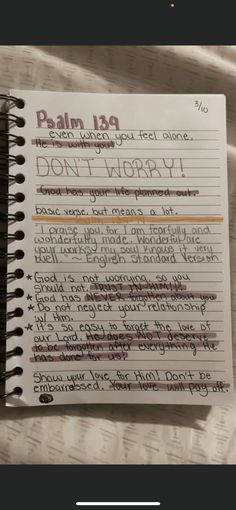 3/10
Psalm 139
even when you feel alone.
He is with you!
DON'T WORRY!
God has your life planned out.
basic verse, but means a lot.
Psalm 139:14
"I praise you, for I am fearfully and
wonderfully made. Wonderful are
your works; my soul knows it very
well." ~ English Standard Version
* God is not worrying, so you
should not. TRUST IN HIM!!!
* God has NEVER forgotten about you
* Do not neglect your relationship
w/ Him.
* It's so easy to forget the love of
our Lord. He does NOT deserve
to be forgotten after everything He
has done for us!
Show your love for Him! Don't be
embarrassed. Your love will pay off.